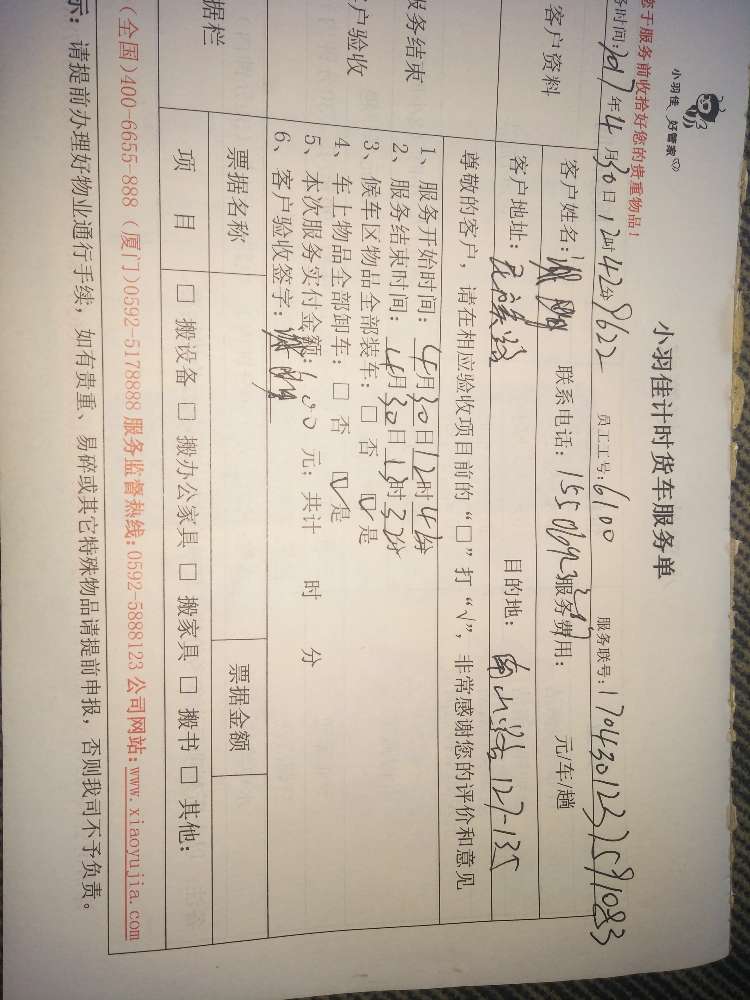 小羽佳 好管家
小羽佳计时货车服务单
您于服务前收拾好您的贵重物品！
务时间：2017年4月30日12时42分8622 员工工号：6100 服务联号：1704301232591083
客户资料
客户姓名： 联系电话： 服务费用： 元/车/趟
客户地址：民族路 目的地：南山路127-135
尊敬的客户，请在相应验收项目前的“□”打“√”，非常感谢您的评价和意见
服务结束
客户验收
1、服务开始时间：4月30日12时42分
2、服务结束时间：4月30日13时32分
3、候车区物品全部装车：□ 否 ☑是
4、车上物品全部卸车：□ 否 ☑是
5、本次服务实付金额：600 元；共计 时 分
6、客户验收签字：
据栏
票据名称 票据金额
项 目 □ 搬设备 □ 搬办公家具 □ 搬家具 □ 搬书 □ 其他：
（全国）400-6655-888（厦门）0592-5178888 服务监督热线：0592-5888123 公司网站：www.xiaoyujia.com
示：请提前办理好物业通行手续，如有贵重、易碎或其它特殊物品请提前申报，否则我司不予负责。